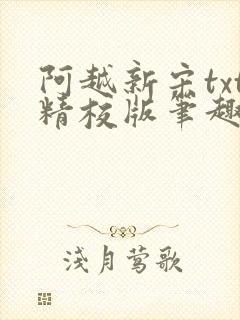 阿越新宋txt
精校版笔趣
浅月莺歌